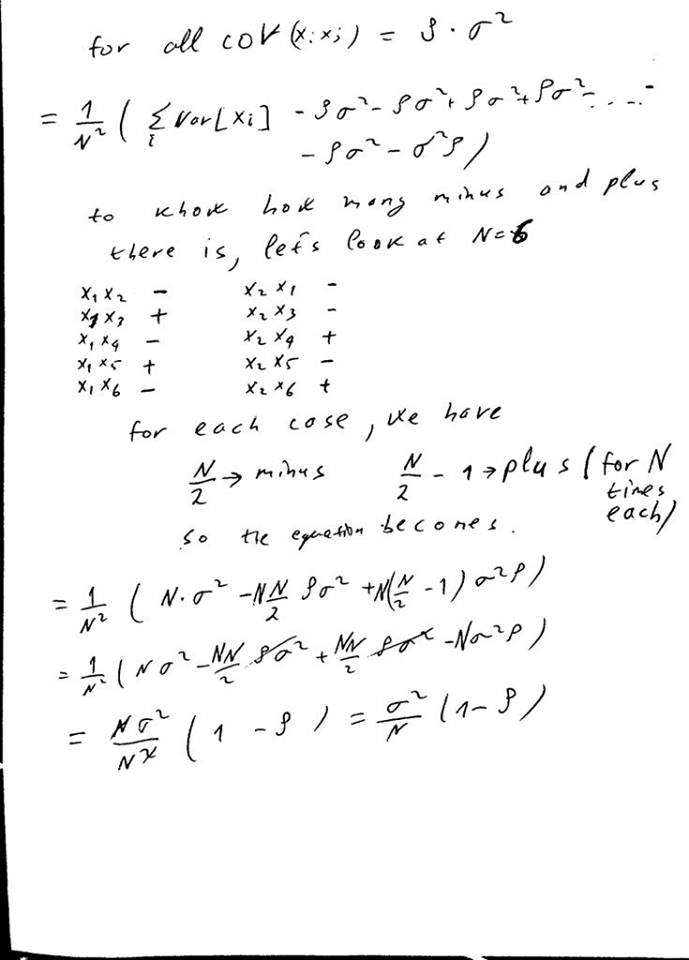 for all cov(xᵢ xⱼ) = ρ · σ²
= 1/N² ( Σᵢ Var[xᵢ] - ρσ² - ρσ² + ρσ² + ρσ² - ....-
- ρσ² - σ²ρ )
to know how many minus and plus
there is, let's look at N=6
x₁ x₂ - x₂ x₁ -
x₁ x₃ + x₂ x₃ -
x₁ x₄ - x₂ x₄ +
x₁ x₅ + x₂ x₅ -
x₁ x₆ - x₂ x₆ +
for each case, we have
N/2 → minus N/2 - 1 → plus (for N
times
each)
so the equation becomes.
= 1/N² ( N·σ² - NN/2 ρσ² + N(N/2 - 1) σ²ρ )
= 1/N² ( Nσ² - NN/2 ρσ² + NN/2 ρσ² - Nσ²ρ )
= Nσ²/N² ( 1 - ρ ) = σ²/N (1 - ρ)